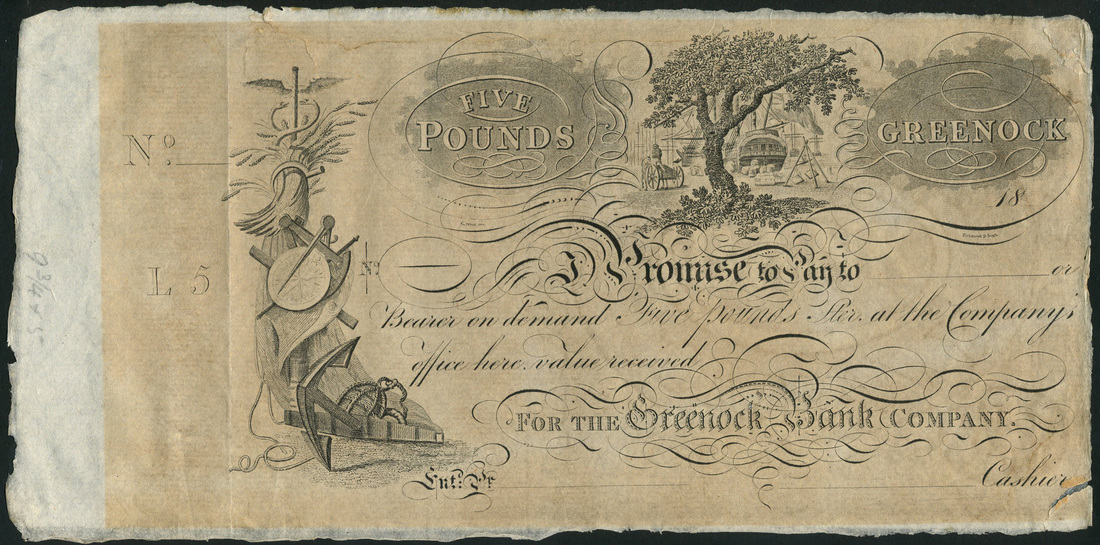 FIVE
POUNDS
GREENOCK
Nº
18
L 5
Nº
I Promise to Pay to
or
Bearer on demand Five pounds Ster. at the Company's
office here value received
FOR THE Greenock Bank COMPANY.
Entd. Pr
Cashier